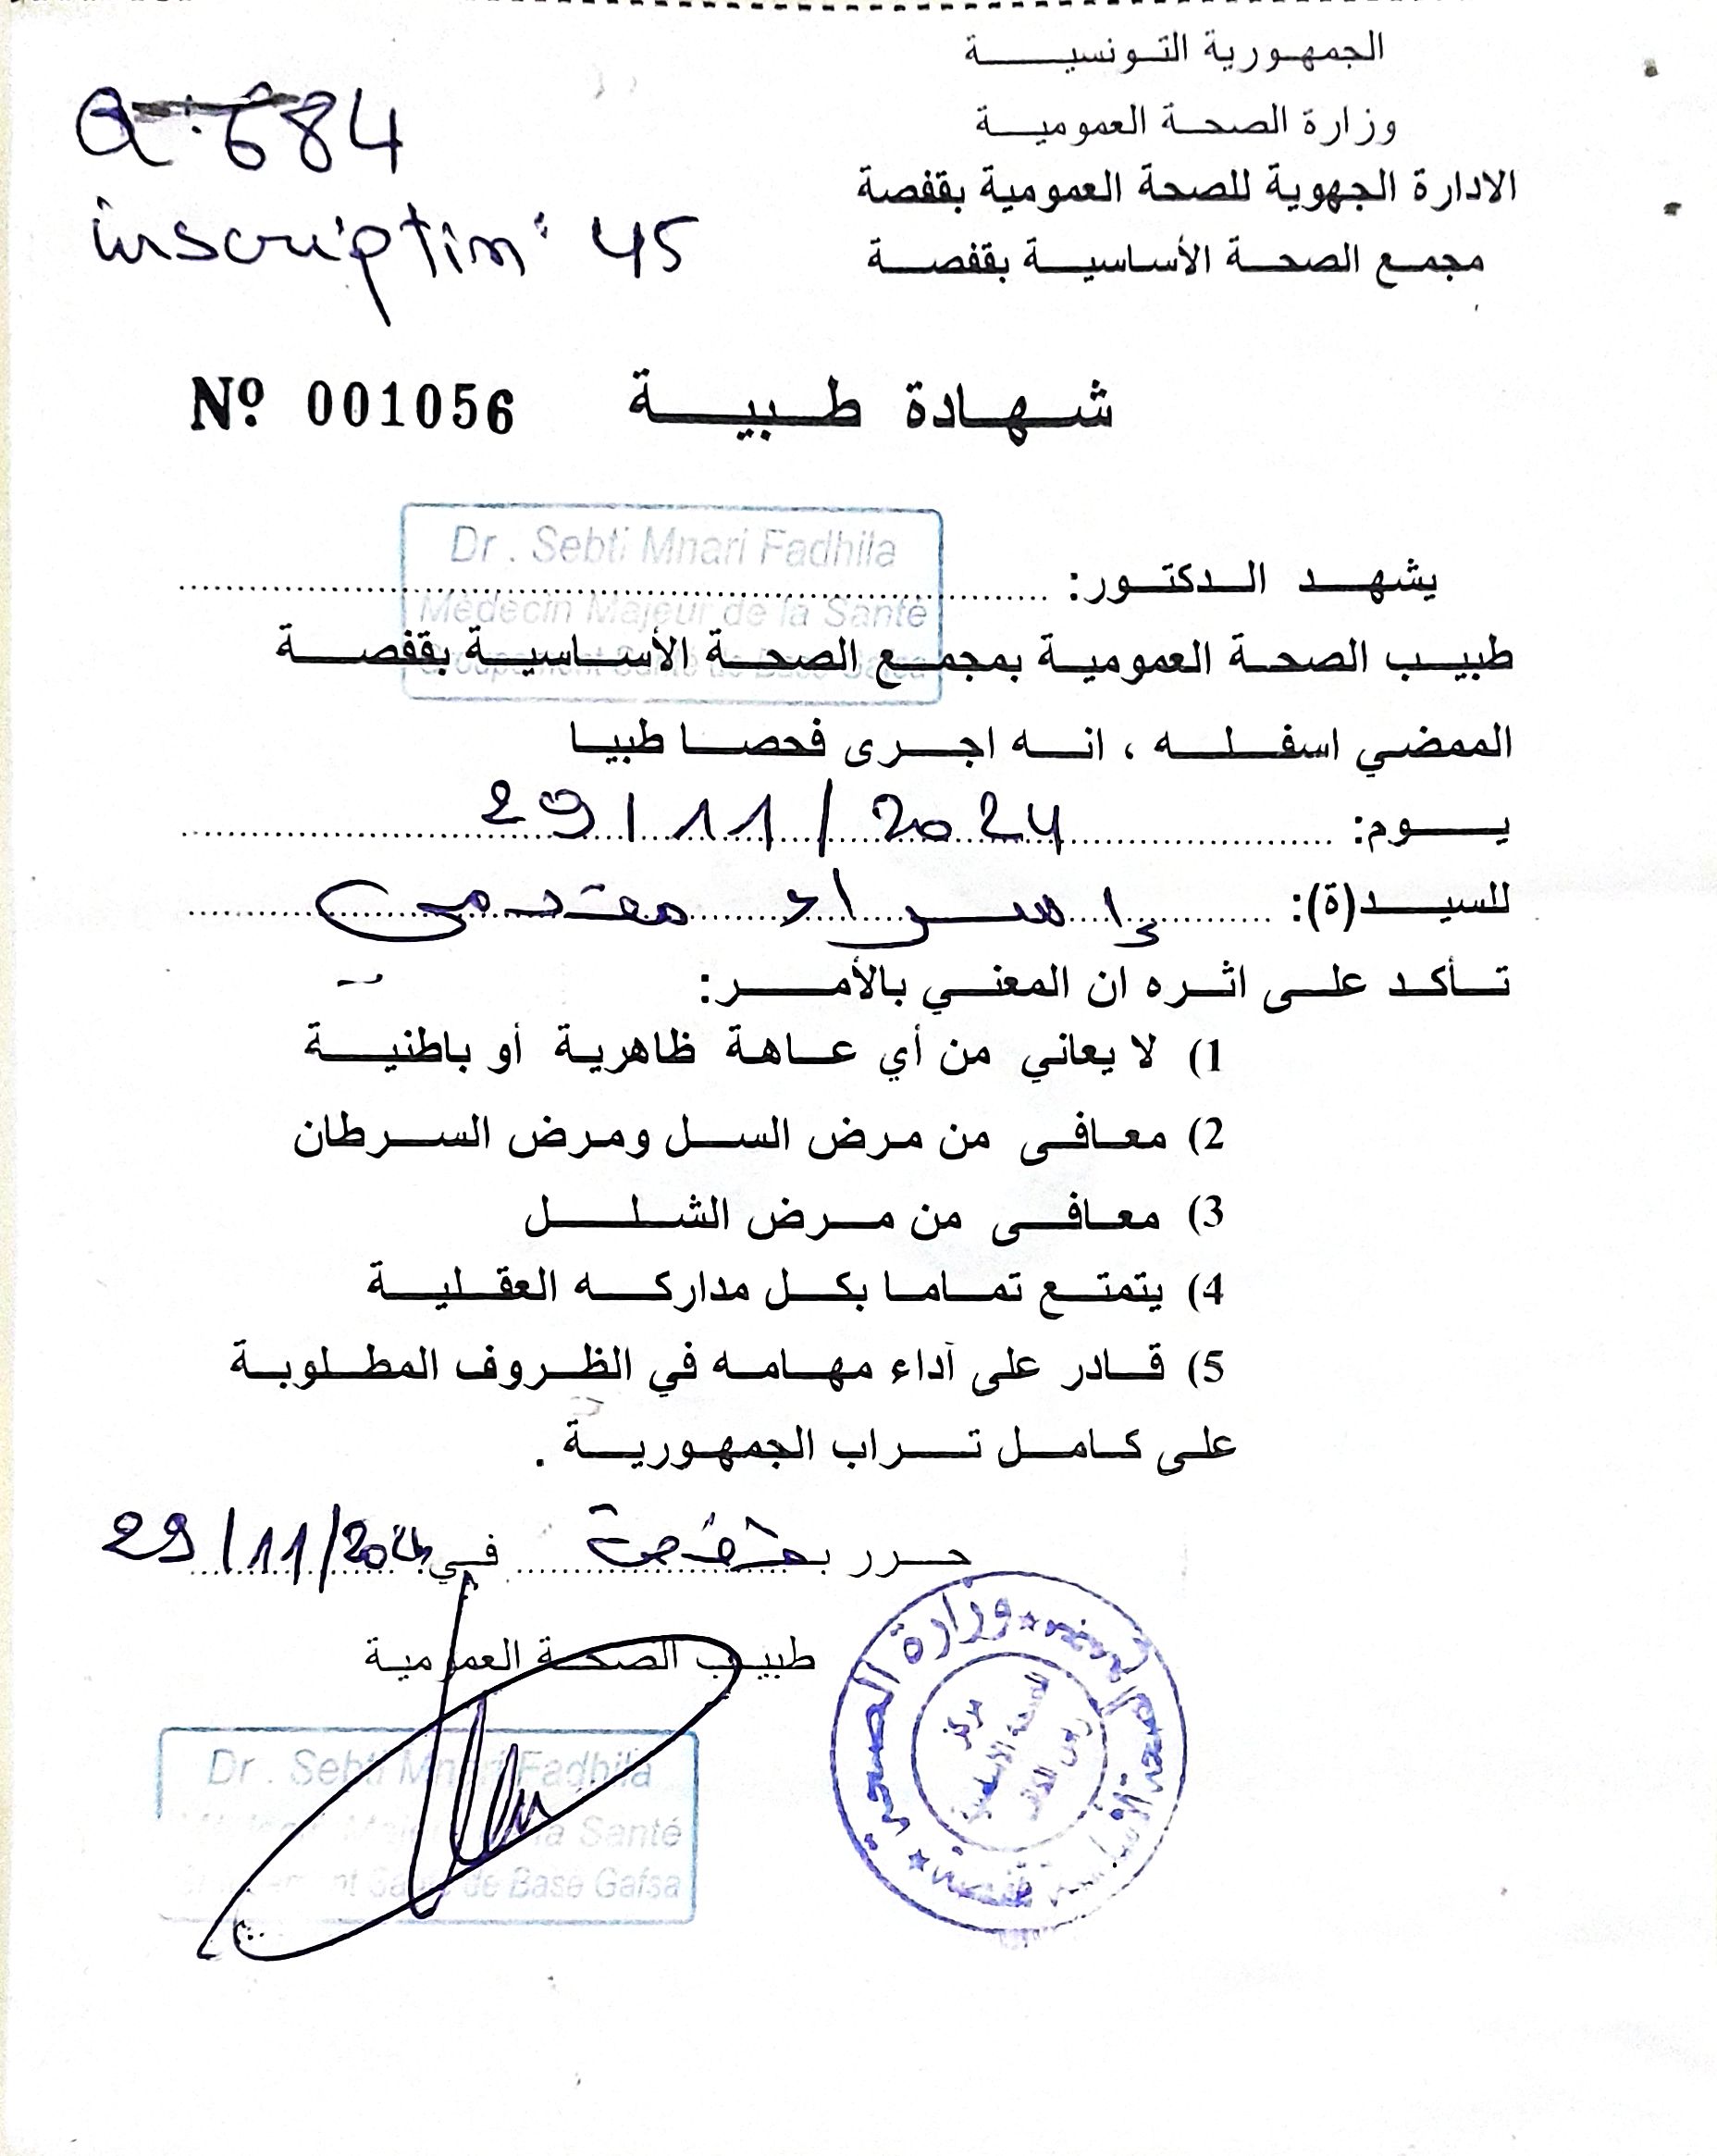 الجمهورية التونسية
وزارة الصحة العمومية
الادارة الجهوية للصحة العمومية بقفصة
مجمع الصحة الأساسية بقفصة
Q: 684
inscription: 45
شهادة طبية
Nº 001056
Dr . Sebti Mnari Fadhila
Médecin Majeur de la Santé
يشهد الدكتور:
طبيب الصحة العمومية بمجمع الصحة الأساسية بقفصة
الممضي اسفله ، انه اجرى فحصا طبيا
يوم: 29/11/2024
للسيد(ة): إسراء مقدمي
تأكد على اثره ان المعني بالأمر:
1) لا يعاني من أي عاهة ظاهرية أو باطنية
2) معافى من مرض السل ومرض السرطان
3) معافى من مرض الشلل
4) يتمتع تماما بكل مداركه العقلية
5) قادر على آداء مهامه في الظروف المطلوبة
على كامل تراب الجمهورية .
حرر بقفصة في 29/11/2024
طبيب الصحة العمومية
Dr . Sebti Mnari Fadhila
Médecin Majeur de la Santé
Groupement Santé de Base Gafsa
وزارة الصحة
مركز
الصحة الأساسية